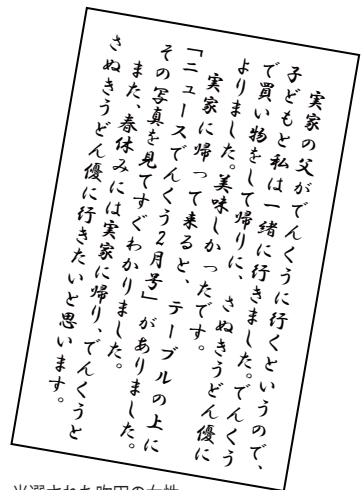 実家の父がでんくうに行くというので、
子どもと私は一緒に行きました。でんくう
で買い物をして帰りに、さぬきうどん優に
よりました。美味しかったです。
実家に帰って来ると、テーブルの上に
「ニュースでんくう2月号」がありました。
その写真を見てすぐわかりました。
また、春休みには実家に帰り、でんくうと
さぬきうどん優に行きたいと思います。